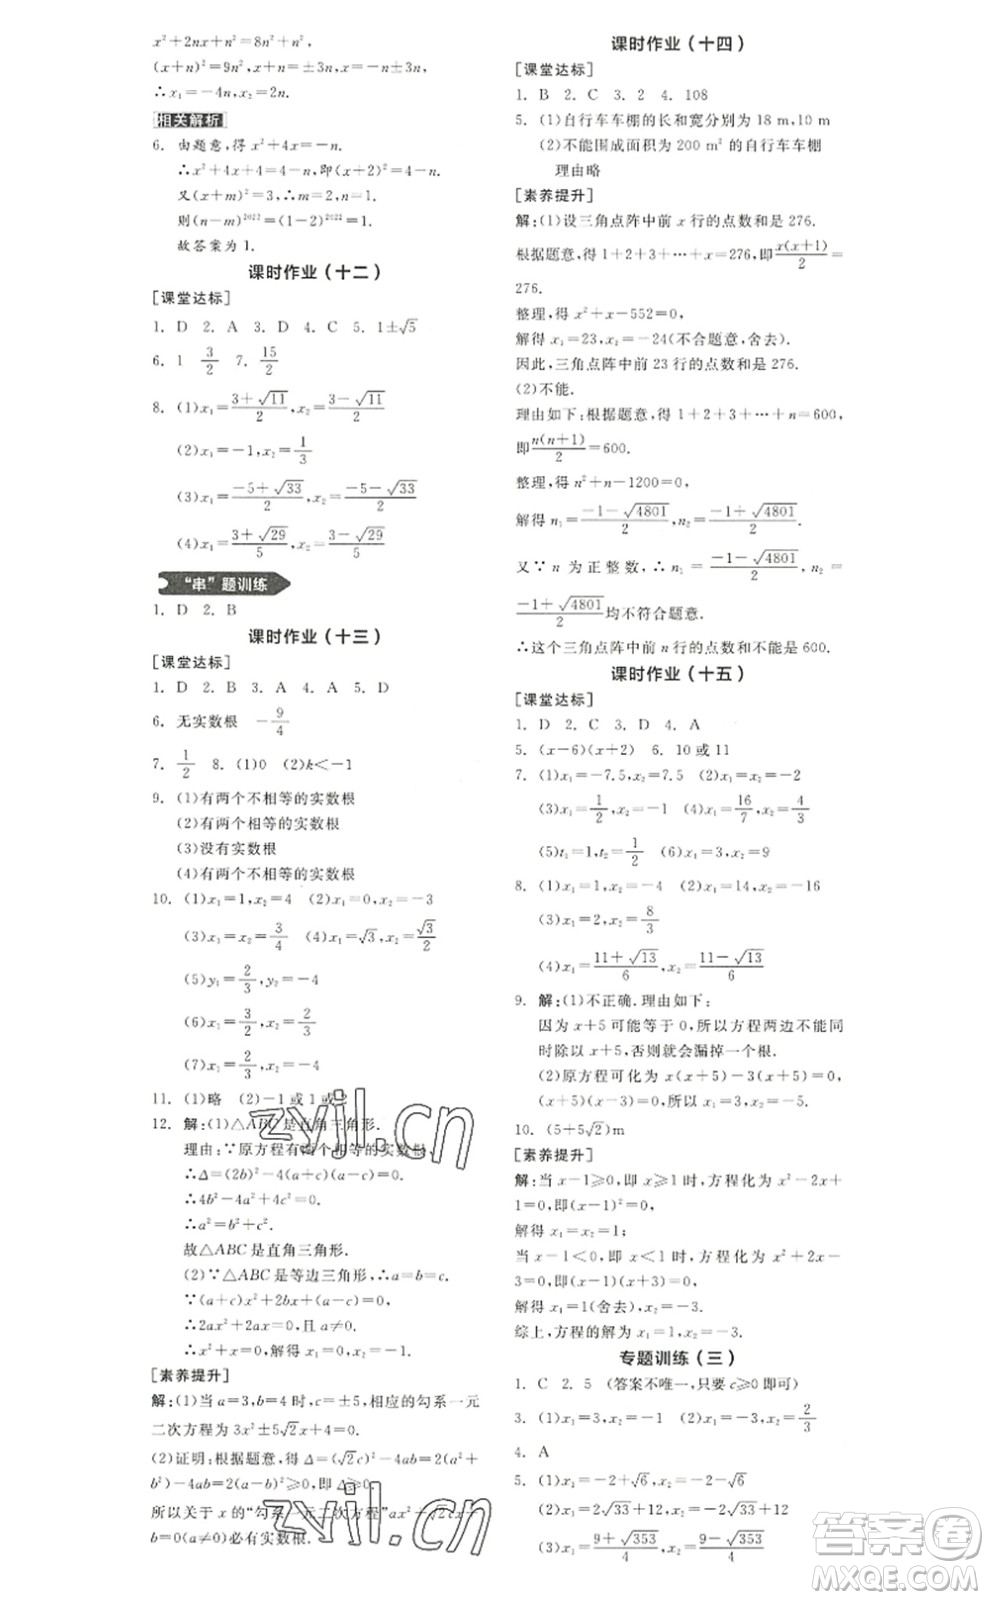 x²+2nx+n²=8n²+n²,
(x+n)²=9n²,x+n=±3n,
∴x₁=-4n,x₂=2n.
相关解析
6. 由题意,得 x²+4x=-n.
∴x²+4x+4=4-n,即(x+2)²=4-n.
又(x+m)²=3,∴m=2,n=1.
则(n-m)²⁰²²=(1-2)²⁰²²=1.
故答案为 1.
课时作业(十二)
[课堂达标]
1. D 2. A 3. D 4. C 5. 1±√5
6. 1 3/2 7. 15/2
8. (1)x₁=(3+√11)/2,x₂=(3-√11)/2
(2)x₁=-1,x₂=1/3
(3)x₁=(-5+√33)/2,x₂=(-5-√33)/2
(4)x₁=(3+√29)/5,x₂=(3-√29)/5
“串”题训练
1. D 2. B
课时作业(十三)
[课堂达标]
1. D 2. B 3. A 4. A 5. D
6. 无实数根 -9/4
7. 1/2 8. (1)0 (2)k<-1
9. (1)有两个不相等的实数根
(2)有两个相等的实数根
(3)没有实数根
(4)有两个不相等的实数根
10. (1)x₁=1,x₂=4 (2)x₁=0,x₂=-3
(3)x₁=x₂=3/4 (4)x₁=√3,x₂=√3/2
(5)y₁=2/3,y₂=-4
(6)x₁=3/2,x₂=2/3
(7)x₁=2/3,x₂=-4
11. (1)略 (2)-1 或 1 或 2
12. 解:(1)△ABC 是直角三角形.
理由:∵原方程有两个相等的实数根,
∴Δ=(2b)²-4(a+c)(a-c)=0,
∴4b²-4a²+4c²=0,
∴a²=b²+c².
故△ABC 是直角三角形.
(2)∵△ABC 是等边三角形,∴a=b=c.
∵(a+c)x²+2bx+(a-c)=0,
∴2ax²+2ax=0,且 a≠0,
∴x²+x=0,解得 x₁=0,x₂=-1.
[素养提升]
解:(1)当 a=3,b=4 时,c=±5,相应的勾系一元
二次方程为 3x²±5√2x+4=0.
(2)证明:根据题意,得 Δ=(√2c)²-4ab=2(a²+
b²)-4ab=2(a-b)²≥0,即 Δ≥0,
所以关于 x 的“勾系一元二次方程”ax²+√2cx+
b=0(a≠0)必有实数根.
课时作业(十四)
[课堂达标]
1. B 2. C 3. 2 4. 108
5. (1)自行车车棚的长和宽分别为 18 m,10 m
(2)不能围成面积为 200 m² 的自行车车棚
理由略
[素养提升]
解:(1)设三角点阵中前 x 行的点数和是 276.
根据题意,得 1+2+3+…+x=276,即x(x+1)/2=
276.
整理,得 x²+x-552=0,
解得 x₁=23,x₂=-24(不合题意,舍去).
因此,三角点阵中前 23 行的点数和是 276.
(2)不能.
理由如下:根据题意,得 1+2+3+…+n=600,
即n(n+1)/2=600.
整理,得 n²+n-1200=0,
解得 n₁=(-1-√4801)/2,n₂=(-1+√4801)/2.
又∵n 为正整数,∴n₁=(-1-√4801)/2,n₂=
(-1+√4801)/2均不符合题意.
∴这个三角点阵中前 n 行的点数和不能是 600.
课时作业(十五)
[课堂达标]
1. D 2. C 3. D 4. A
5. (x-6)(x+2) 6. 10 或 11
7. (1)x₁=-7.5,x₂=7.5 (2)x₁=x₂=-2
(3)x₁=1/2,x₂=-1 (4)x₁=16/7,x₂=4/3
(5)t₁=1,t₂=1/2 (6)x₁=3,x₂=9
8. (1)x₁=1,x₂=-4 (2)x₁=14,x₂=-16
(3)x₁=2,x₂=8/3
(4)x₁=(11+√13)/6,x₂=(11-√13)/6
9. 解:(1)不正确.理由如下:
因为 x+5 可能等于 0,所以方程两边不能同
时除以 x+5,否则就会漏掉一个根.
(2)原方程可化为(x+5)-3x(x+5)=0,
(x+5)(1-3x)=0,解得 x₁=1/3,x₂=-5.
10. (5+5√2)m
[素养提升]
解:当 x-1≥0,即 x≥1 时,方程化为 x²-2x+
1=0,即(x-1)²=0,
解得 x₁=x₂=1;
当 x-1<0,即 x<1 时,方程化为 x²+2x-3=
0,即(x-1)(x+3)=0,
解得 x₁=1(舍去),x₂=-3.
综上,方程的解为 x₁=1,x₂=-3.
专题训练(三)
1. C 2. 5 (答案不唯一,只要 c≥0 即可)
3. (1)x₁=3,x₂=-1 (2)x₁=-3,x₂=2/3
4. A
5. (1)x₁=-2+√6,x₂=-2-√6
(2)x₁=2√33+12,x₂=-2√33+12
(3)x₁=(9+√353)/4,x₂=(9-√353)/4
zyjl.cn
zyjl.cn
答案卷
MXQE.COM